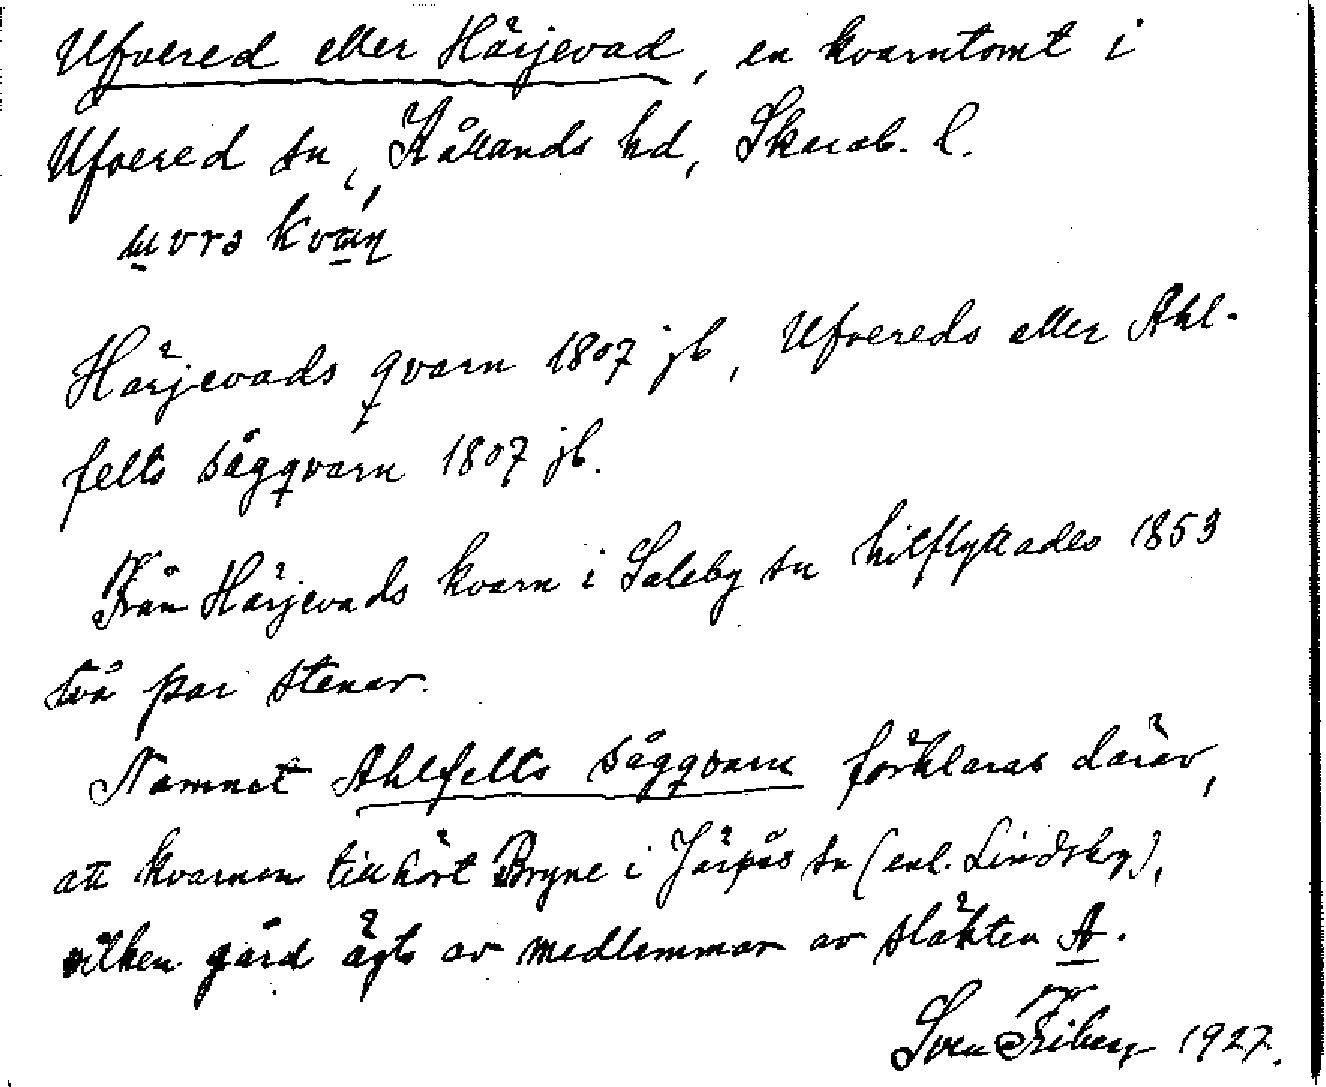 Ufvered eller Härjevad, en kvarntomt i
Ufvered sn, Kållands hd, Skarab. l.
Härjevads qvarn 1807 jb, Ufvereds eller Ahl-
felts sågqvarn 1807 jb.
Från Härjevads kvarn i Saleby sn hitflyttades 1853
två par stenar.
Namnet Ahlfelts sågqvarn förklaras därav,
att kvarnen tillhört Bryne i Järpås sn (enl. Lindskog),
vilken gård ägts av medlemmar av släkten A.
Sven Friberg 1927.